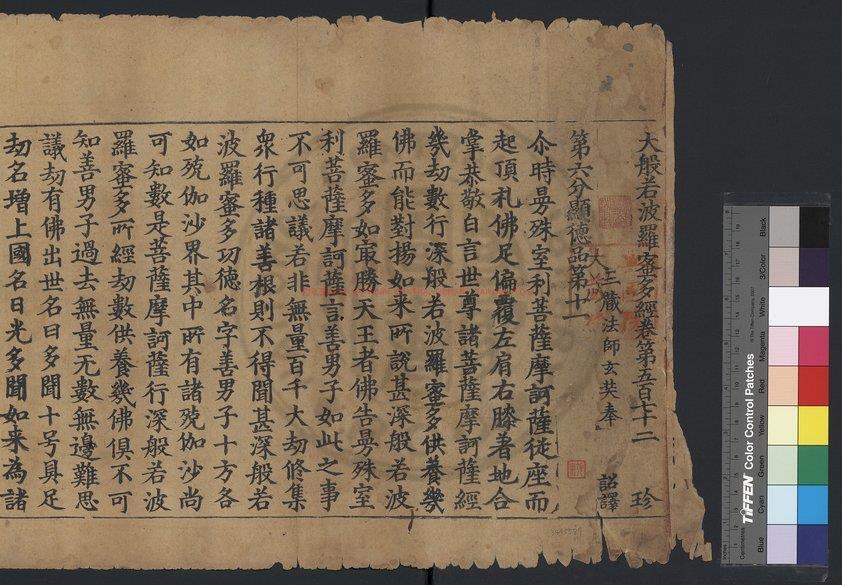 大般若波羅蜜多經卷第五百七十二 珍
三藏法師玄奘奉 詔譯
第六分顯德品第十一
尒時曼殊室利菩薩摩訶薩從座而
起頂礼佛足偏覆左肩右膝著地合
掌恭敬白言世尊諸菩薩摩訶薩經
幾劫數行深般若波羅蜜多供養幾
佛而能對揚如來所說甚深般若波
羅蜜多如冣勝天王者佛告曼殊室
利菩薩摩訶薩言善男子如此之事
不可思議若非無量百千大劫修集
衆行種諸善根則不得聞甚深般若
波羅蜜多功德名字善男子十方各
如殑伽沙界其中所有諸殑伽沙尚
可知數是菩薩摩訶薩行深般若波
羅蜜多所經劫數供養幾佛俱不可
知善男子過去無量无數無邊難思
議劫有佛出世名曰多聞十号具足
劫名增上國名日光多聞如来為諸
TIFFEN Color Control Patches
© The Tiffen Company, 2007
Centimetres
Inches
Blue
Cyan
Green
Yellow
Red
Magenta
White
3/Color
Black